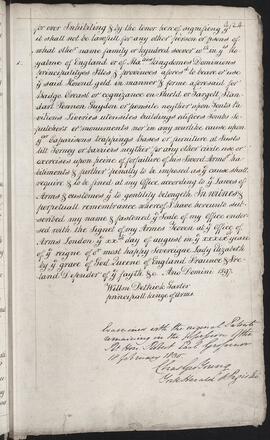 324
for ever Inhibiting & by the tenor hereof signifying yt
it shall not be lawfull for any other person or psons of
what other name family or hundred soever wth in ye
galene of England or of Mates kingdomes Dominions
principalityes Isles & provences aforesd to beare or use
ye said Generall gold in manner & forme aforesaid for
Badge Creast or cognizance on shield or Targett, Stan-
dart Pennon Guydon or pensile neyther upon Tents Pa-
vilions Liveries utensiles buildings edifices tombs Se-
pulchers or monuments nor in any warlike cause upon
ye Capasinns trappings bases or furniture at Jousts
tilt Torney or barriers neyther for any other civile use or
exercises upon peine of forfaiture of his Sword Armes ha-
biliments & further penalty to be imposed as ye cause shall
require & to be fined at my office, according to ye Lawes of
Armes & customes yt to gentility belongeth In witnes &
perpetuall remembranes whereof I have hereunto sub-
scribed my name & fastened ye Seale of my office endor-
sed with the Signet of my Armes Geven at ye Office of
Armes London ye XXth day of august in ye XXXIX yeare
of ye reigne of or most happy Sovereigne Lady Elizabeth
by ye grace of God Queene of England Fraunce & Ire-
land Defender of ye fayth &c. Ano Domini 1597.
Willm Dethick Garter
principall kinge of Armes
Examined with the original Patent
remaining in the possession of the
Rt Hon. Robert Earl Grosvenor
11 February 1836
Chas Geo Young
York Herald & Register